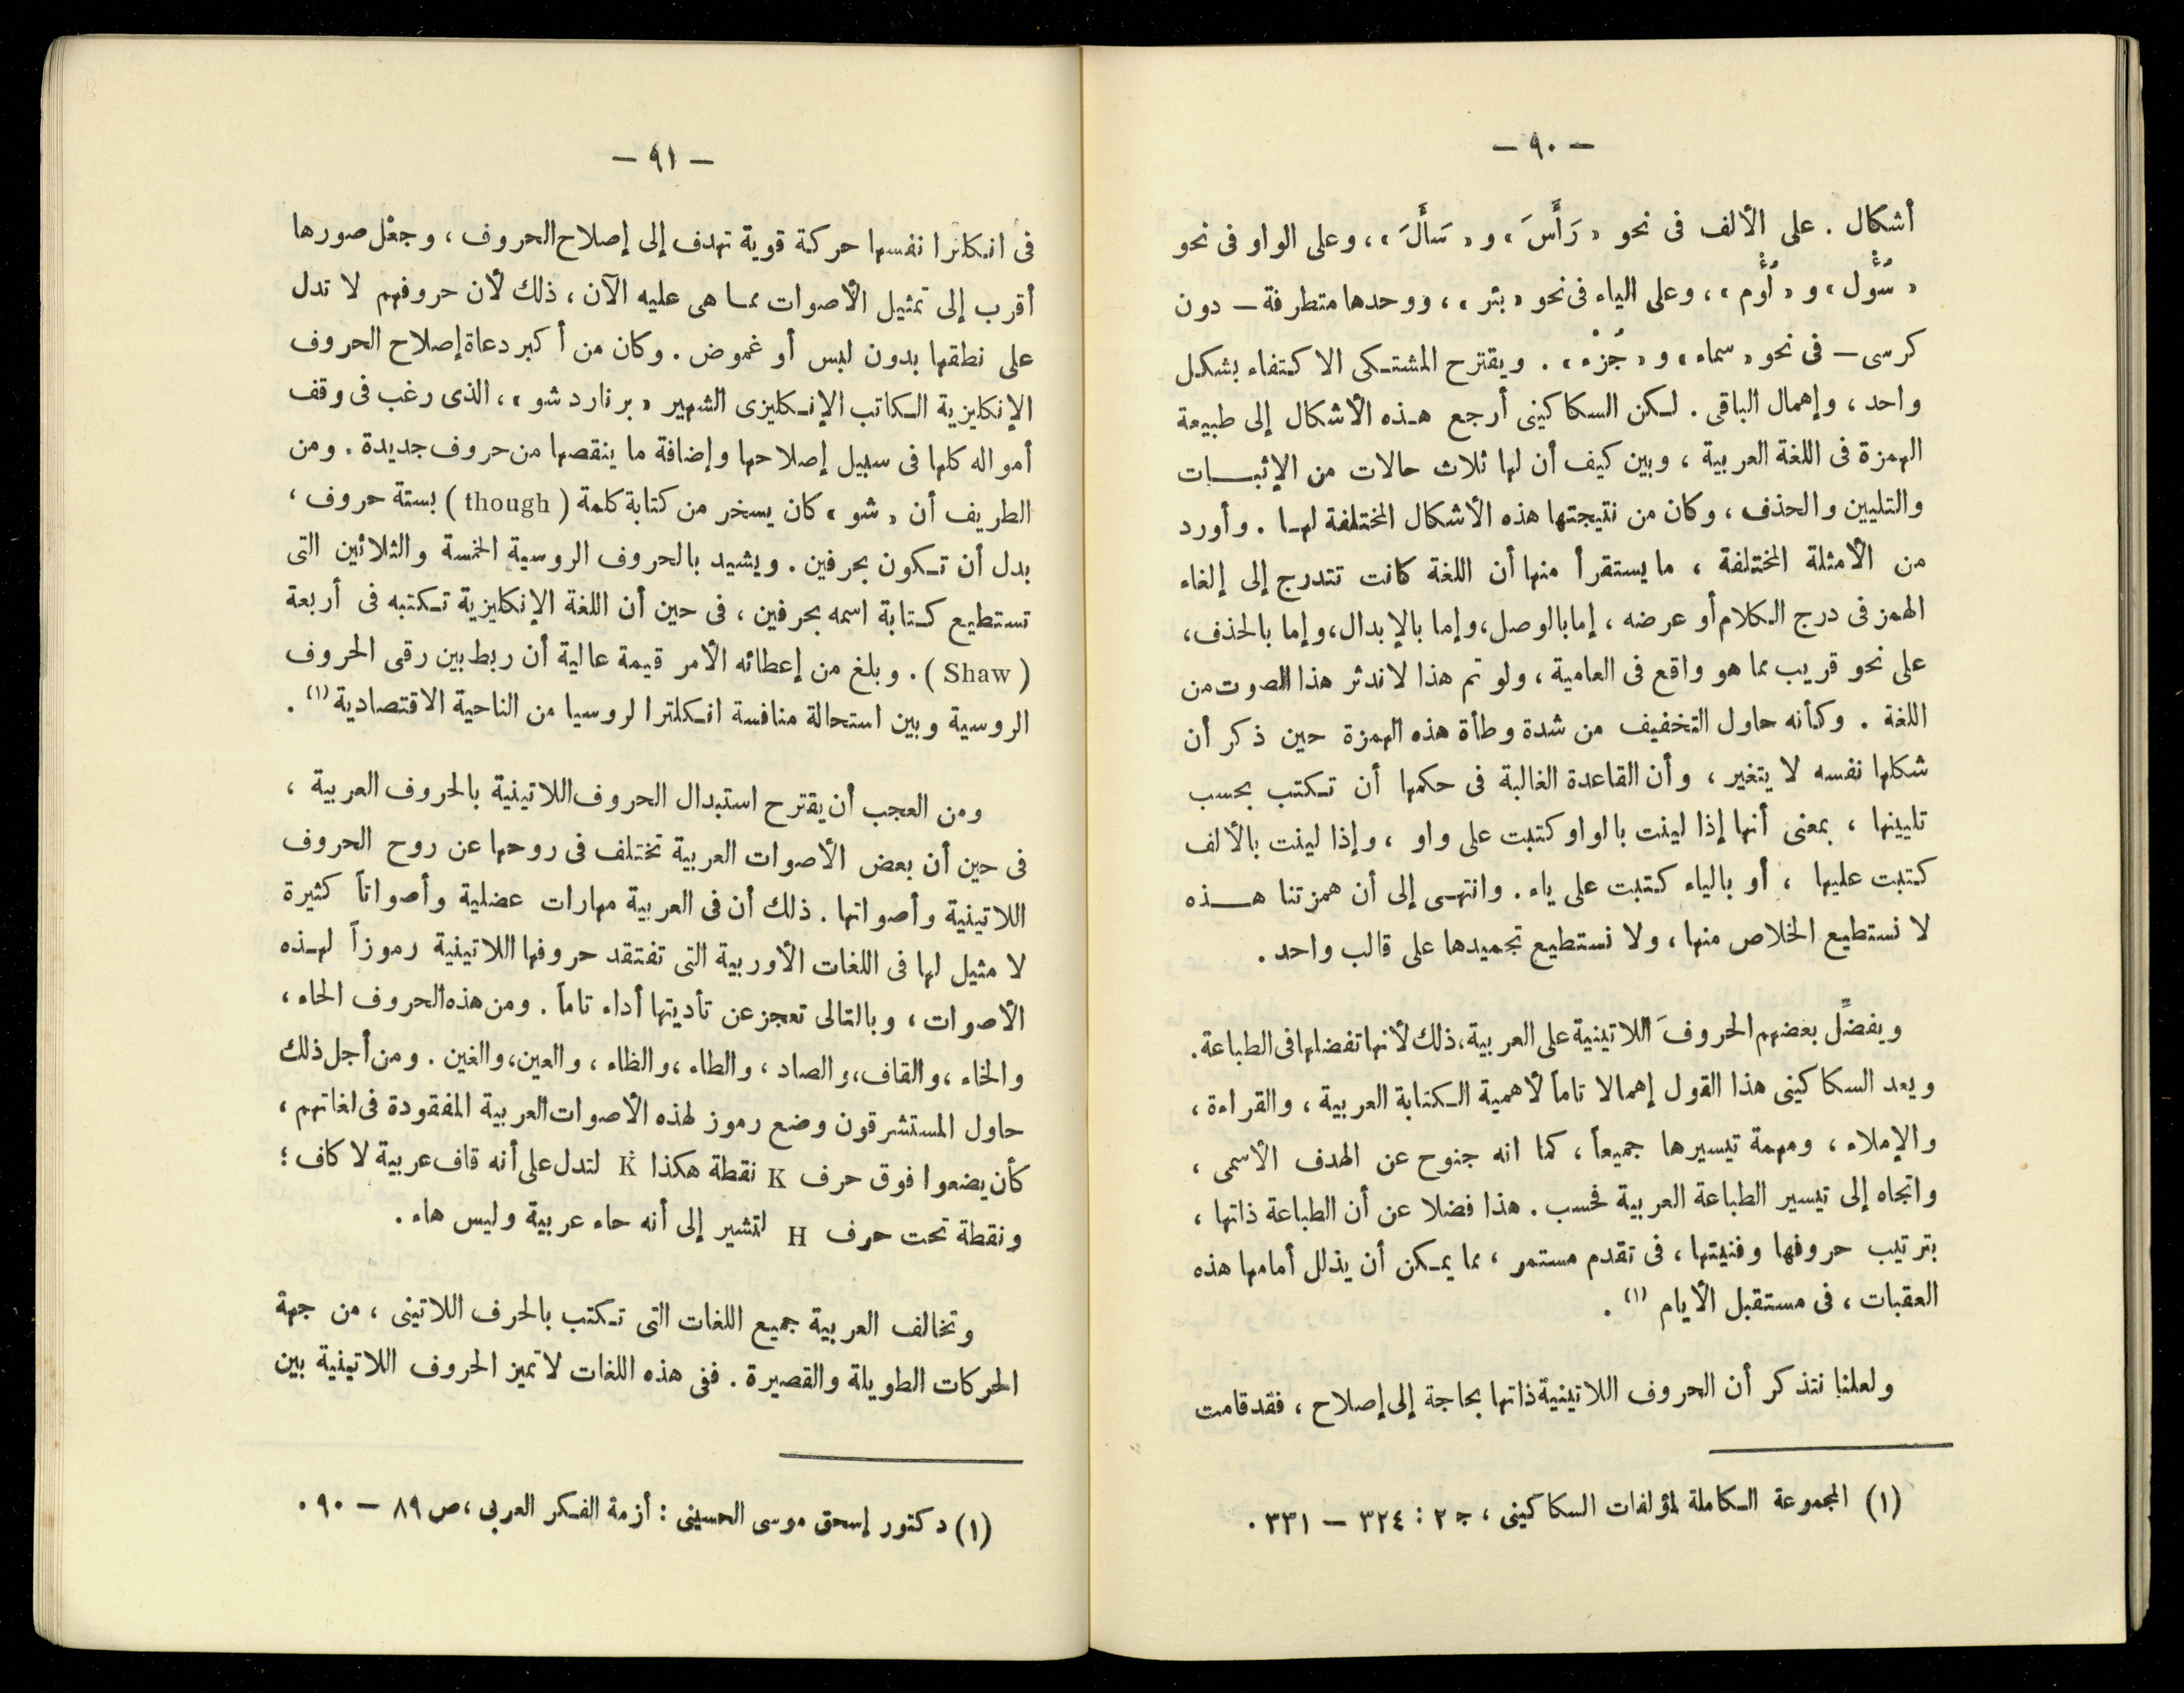 — ٩٠ —
أشكال . على الألف فى نحو « رَأَسَ » و « سَأَلَ » ، وعلى الواو فى نحو
« سُؤْل » و « لُؤْم » ، وعلى الياء فى نحو « بئر » ، ووحدها متطرفة — دون
كرسى — فى نحو « سماء » و « جُزْء » . ويقترح المشتكى الاكتفاء بشكل
واحد ، وإهمال الباقى . لكن السكاكينى أرجع هذه الأشكال إلى طبيعة
الهمزة فى اللغة العربية ، وبين كيف أن لها ثلاث حالات من الإثبات
والتليين والحذف ، وكان من نتيجتها هذه الأشكال المختلفة لها . وأورد
من الأمثلة المختلفة ، ما يستقرأ منها أن اللغة كانت تتدرج إلى إلغاء
الهمز فى درج الكلام أو عرضه ، إما بالوصل ، وإما بالإبدال ، وإما بالحذف ،
على نحو قريب مما هو واقع فى العامية ، ولو تم هذا لاندثر هذا الصوت من
اللغة . وكأنه حاول التخفيف من شدة وطأة هذه الهمزة حين ذكر أن
شكلها نفسه لا يتغير ، وأن القاعدة الغالبة فى حكمها أن تكتب بحسب
تليينها ، بمعنى أنها إذا لينت بالواو كتبت على واو ، وإذا لينت بالألف
كتبت عليها ، أو بالياء كتبت على ياء . وانتهى إلى أن همزتنا هذه
لا نستطيع الخلاص منها ، ولا نستطيع تجميدها على قالب واحد .
ويفضِّل بعضهم الحروفَ اللاتينية على العربية ، ذلك لأنها تفضلها فى الطباعة .
ويعد السكاكينى هذا القول إهمالا تاماً لأهمية الكتابة العربية ، والقراءة ،
والإملاء ، ومهمة تيسيرها جميعاً ، كما انه جنوح عن الهدف الأسمى ،
واتجاه إلى تيسير الطباعة العربية فحسب . هذا فضلا عن أن الطباعة ذاتها ،
بترتيب حروفها وفنيتها ، فى تقدم مستمر ، مما يمكن أن يذلل أمامها هذه
العقبات ، فى مستقبل الأيام (١) .
ولعلنا نتذكر أن الحروف اللاتينية ذاتها بحاجة إلى إصلاح ، فقد قامت
(١) المجموعة الكاملة لمؤلفات السكاكينى ، ج ٢ : ٣٢٤ — ٣٣١ .
— ٩١ —
فى انكلترا نفسها حركة قوية تهدف إلى إصلاح الحروف ، وجعْل صورها
أقرب إلى تمثيل الأصوات مما هى عليه الآن ، ذلك لأن حروفهم لا تدل
على نطقها بدون لبس أو غموض . وكان من أكبر دعاة إصلاح الحروف
الإنكليزية الكاتب الإنكليزى الشهير « برنارد شو » ، الذى رغب فى وقف
أمواله كلها فى سبيل إصلاحها وإضافة ما ينقصها من حروف جديدة . ومن
الطريف أن « شو » كان يسخر من كتابة كلمة ( though ) بستة حروف ،
بدل أن تكون بحرفين . ويشيد بالحروف الروسية الخمسة والثلاثين التى
تستطيع كتابة اسمه بحرفين ، فى حين أن اللغة الإنكليزية تكتبه فى أربعة
( Shaw ) . وبلغ من إعطائه الأمر قيمة عالية أن ربط بين رقى الحروف
الروسية وبين استحالة منافسة انكلترا لروسيا من الناحية الاقتصادية (١) .
ومن العجب أن يقترح استبدال الحروف اللاتينية بالحروف العربية ،
فى حين أن بعض الأصوات العربية تختلف فى روحها عن روح الحروف
اللاتينية وأصواتها . ذلك أن فى العربية مهارات عضلية وأصواتاً كثيرة
لا مثيل لها فى اللغات الأوربية التى تفتقد حروفها اللاتينية رموزاً لهذه
الأصوات ، وبالتالى تعجز عن تأديتها أداء تاماً . ومن هذه الحروف الحاء ،
والخاء ، والقاف ، والصاد ، والطاء ، والظاء ، والعين ، والغين . ومن أجل ذلك
حاول المستشرقون وضع رموز لهذه الأصوات العربية المفقودة فى لغاتهم ،
كأن يضعوا فوق حرف K نقطة هكذا K̇ لتدل على أنه قاف عربية لا كاف ؛
ونقطة تحت حرف H لتشير إلى أنه حاء عربية وليس هاء .
وتخالف العربية جميع اللغات التى تكتب بالحرف اللاتينى ، من جهة
الحركات الطويلة والقصيرة . ففى هذه اللغات لا تميز الحروف اللاتينية بين
(١) دكتور إسحق موسى الحسينى : أزمة الفكر العربى ، ص ٨٩ — ٩٠ .